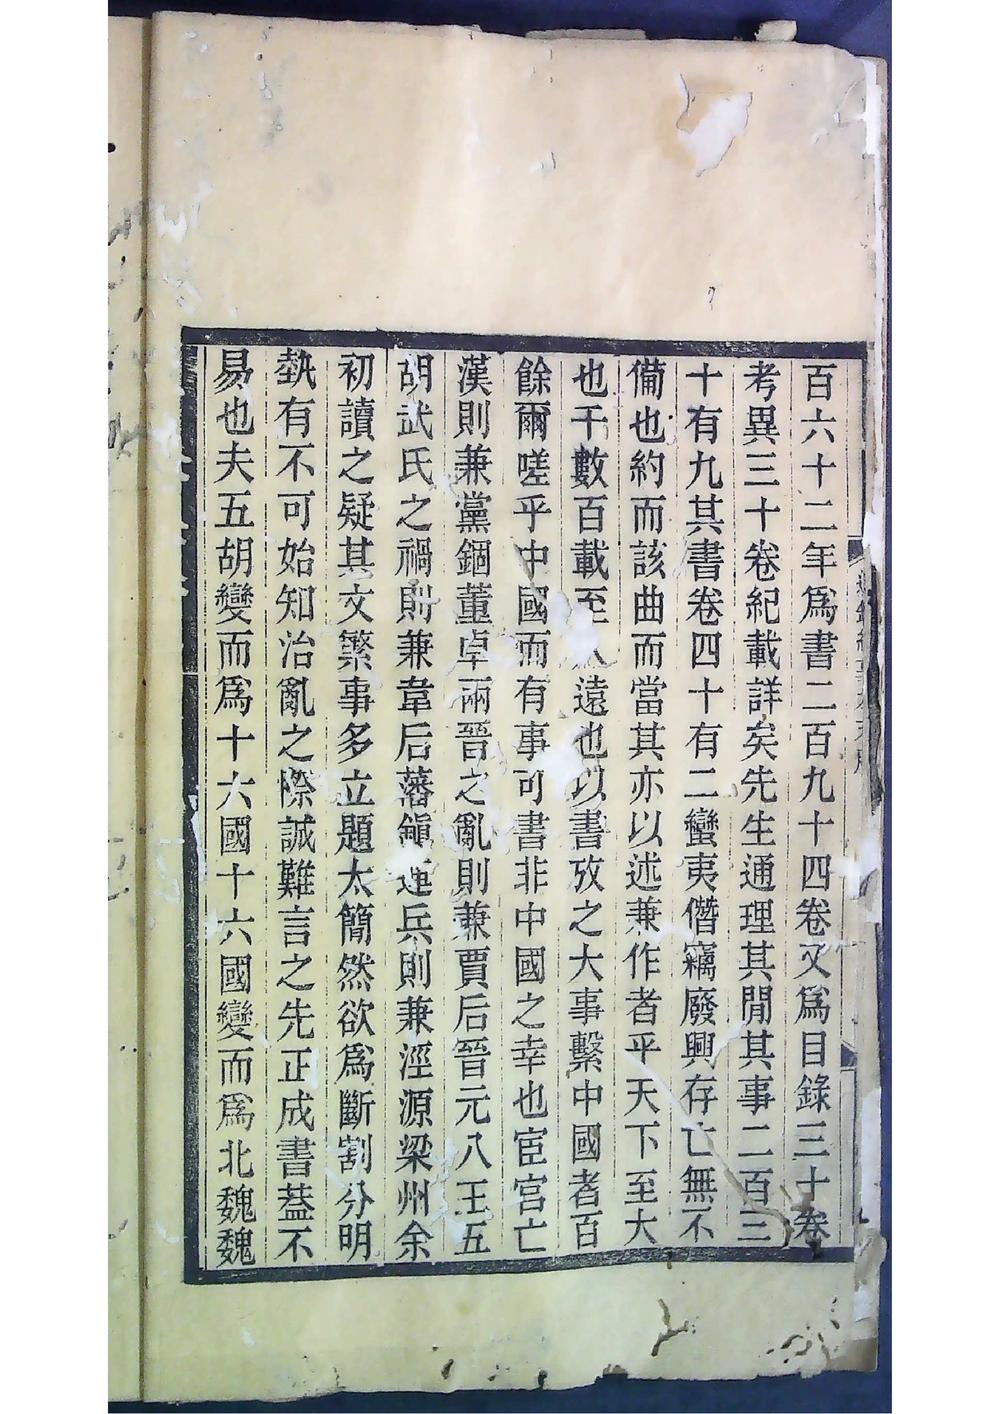 百六十二年爲書二百九十四卷又爲目錄三十卷
考異三十卷紀載詳矣先生通理其閒其事二百三
十有九其書卷四十有二蠻夷僭竊廢興存亡無不
備也約而該曲而當其亦以述兼作者乎天下至大
也千數百載至遠也以書攷之大事繫中國者百
餘爾嗟乎中國而有事可書非中國之幸也宦官亡
漢則兼黨錮董卓兩晉之亂則兼賈后晉元八王五
胡武氏之禍則兼韋后藩鎭連兵則兼涇源梁州余
初讀之疑其文繁事多立題太簡然欲爲斷割分明
埶有不可始知治亂之際誠難言之先正成書葢不
易也夫五胡變而爲十六國十六國變而爲北魏魏